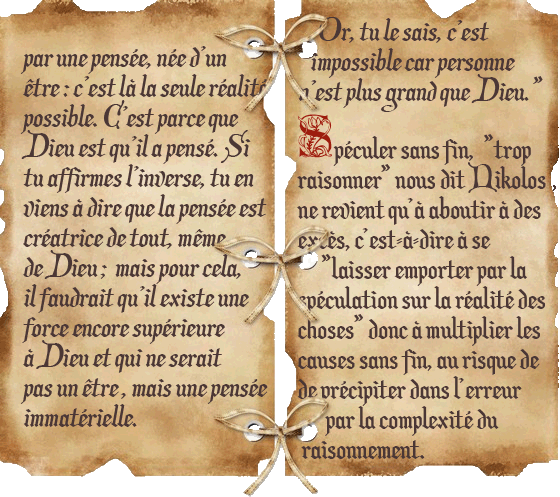 par une pensée, née d'un
être : c'est là la seule réalité
possible. C'est parce que
Dieu est qu'il a pensé. Si
tu affirmes l'inverse, tu en
viens à dire que la pensée est
créatrice de tout, même
de Dieu ; mais pour cela,
il faudrait qu'il existe une
force encore supérieure
à Dieu et qui ne serait
pas un être, mais une pensée
immatérielle.
Or, tu le sais, c'est
impossible car personne
n'est plus grand que Dieu."
Spéculer sans fin, "trop
raisonner" nous dit Nikolos,
ne revient qu'à aboutir à des
excès, c'est-à-dire à se
"laisser emporter par la
spéculation sur la réalité des
choses" donc à multiplier les
causes sans fin, au risque de
de précipiter dans l'erreur
par la complexité du
raisonnement.